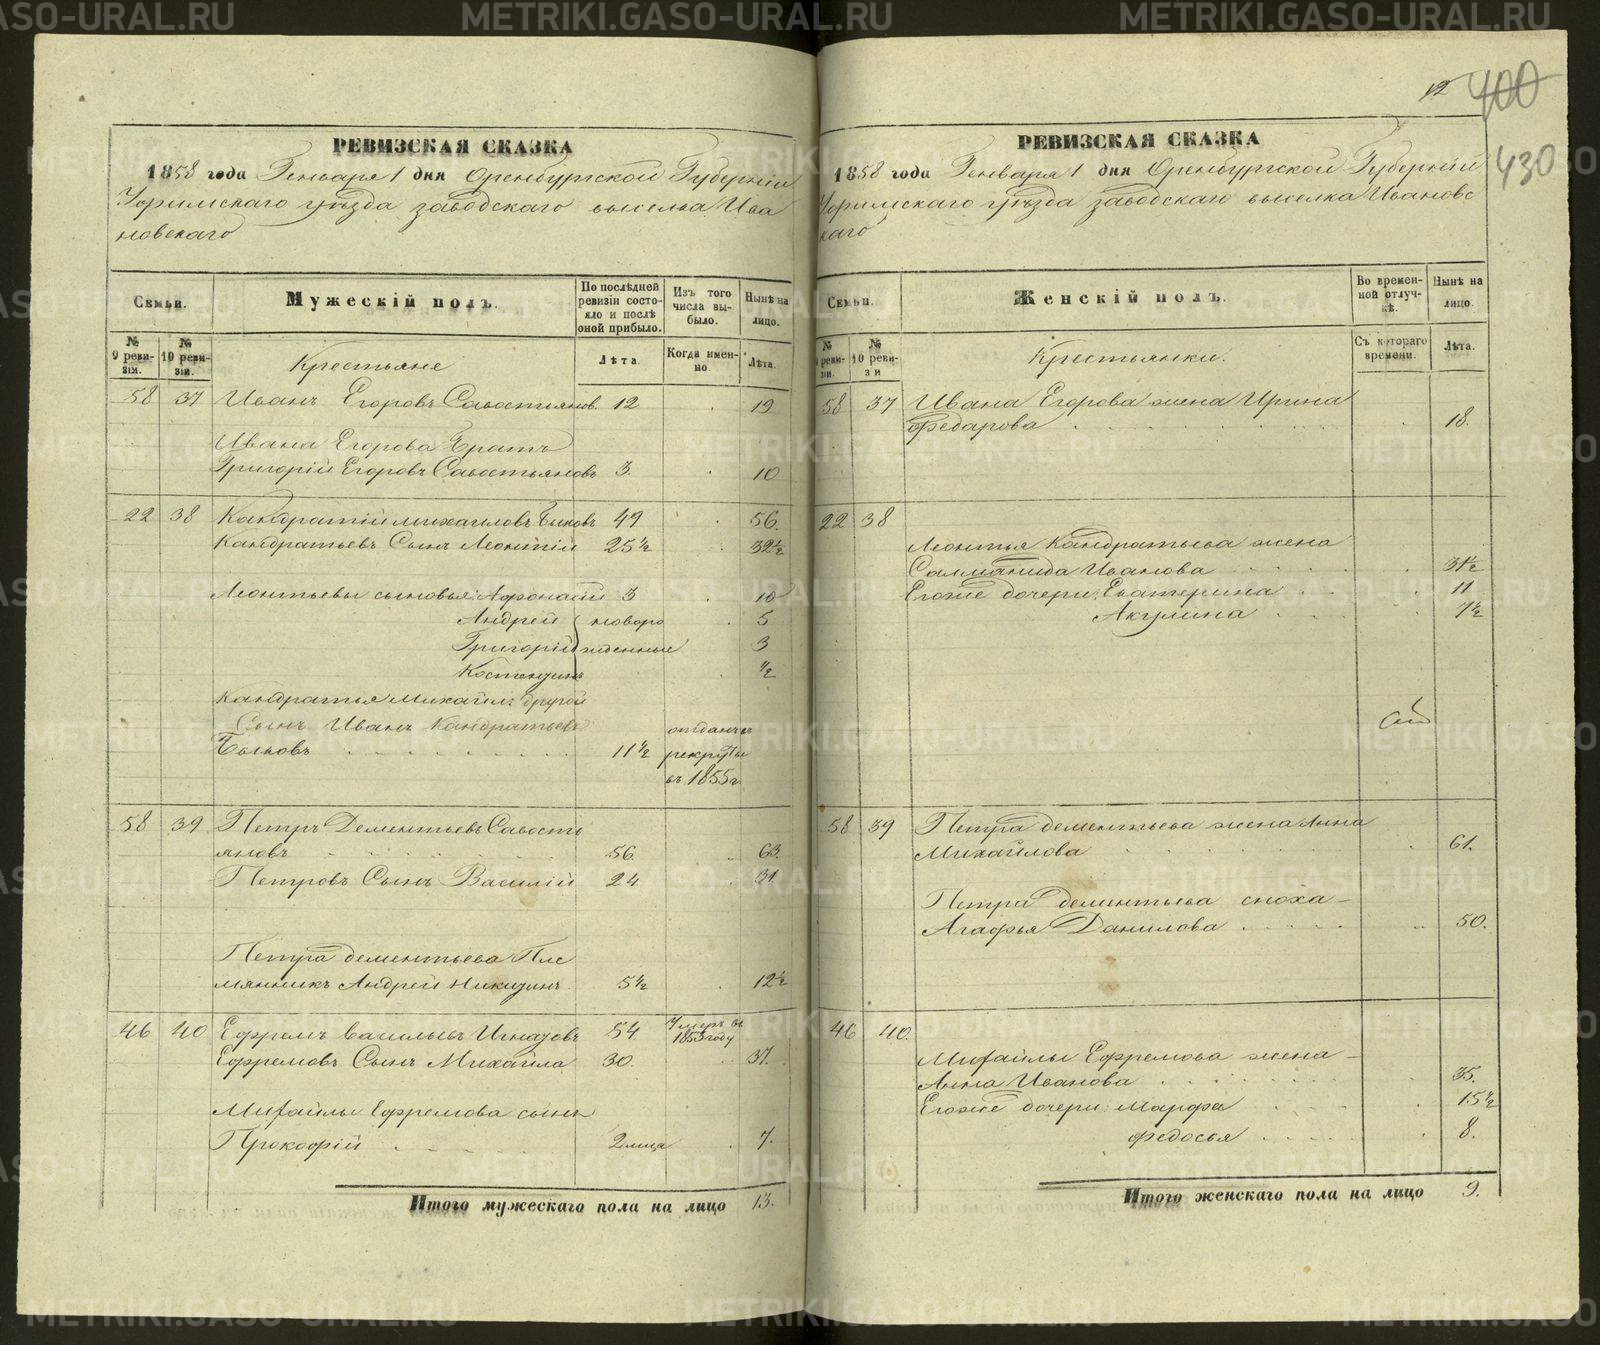 METRIKI.GASO-URAL.RU
12 400
430
РЕВИЗСКАЯ СКАЗКА
1858 года Генваря 1 дня Оренбургской Губерніи
уѣзда заводскаго выселка Ива
новскаго
Семьи.
Мужескій полъ.
По послѣдней ревизіи состояло и послѣ оной прибыло.
Изъ того числа выбыло.
Нынѣ на лицо.
№ 9 ревизіи.
№ 10 ревизіи.
Крестьяне
Лѣта.
Когда именно.
Лѣта.
58 37 Иванъ Егоровъ Савостьянов. 12 19
Ивана Егорова братъ
Григорій Егоровъ Савостьяновъ 3. 10
22 38 Кандратій Михаиловъ Быковъ 49 56.
Кандратьевъ Сынъ Леонтій 25½ 32½
Леонтьевы сыновья: Афонасій 3 10
Андрей новоро 5
Григорій жденные 3
Костентин ½
Кандратья Михайл: другой
Сынъ Иванъ Кандратьевъ отданъ въ
Быковъ 11½ рекруты
въ 1855 г.
58 39 Петръ Дементьевъ Савость
яновъ 56. 63.
Петровъ Сынъ Василій 24 31
Петра Дементьева Пле
мянникъ Андрей Никитинъ 5½ 12½
46 40 Ефремъ Васильевъ Игнатовъ 54. Умеръ въ 1853 году
Ефремовъ Сынъ Михайла 30. 37.
Михайлы Ефремова сынъ
Прокофій 2 мца 7.
Итого мужескаго пола на лицо 13.
РЕВИЗСКАЯ СКАЗКА
1858 года Генваря 1 дня Оренбургской Губерніи
уѣзда заводскаго выселка Ивановс
каго
Семьи.
Женскій полъ.
Во временной отлучкѣ.
Нынѣ на лицо.
№ 9 ревизіи.
№ 10 ревизи
Крестьянки.
Съ котораго времени.
Лѣта.
58 37 Ивана Егорова жена Ирина
Федарова 18.
22 38
Леонтья Кандратьева жена
Саламанида Иванова 31½
Егоже дочери: Екатерина 11
Акулина 7½
58 39 Петра Дементьева жена Анна
Михайлова 61.
Петра Дементьева сноха
Агафья Данилова 50.
46 40.
Михайлы Ефремова жена
Анна Иванова 35.
Егоже дочери: Марфа 15½
Федосья 8.
Итого женскаго пола на лицо 9.